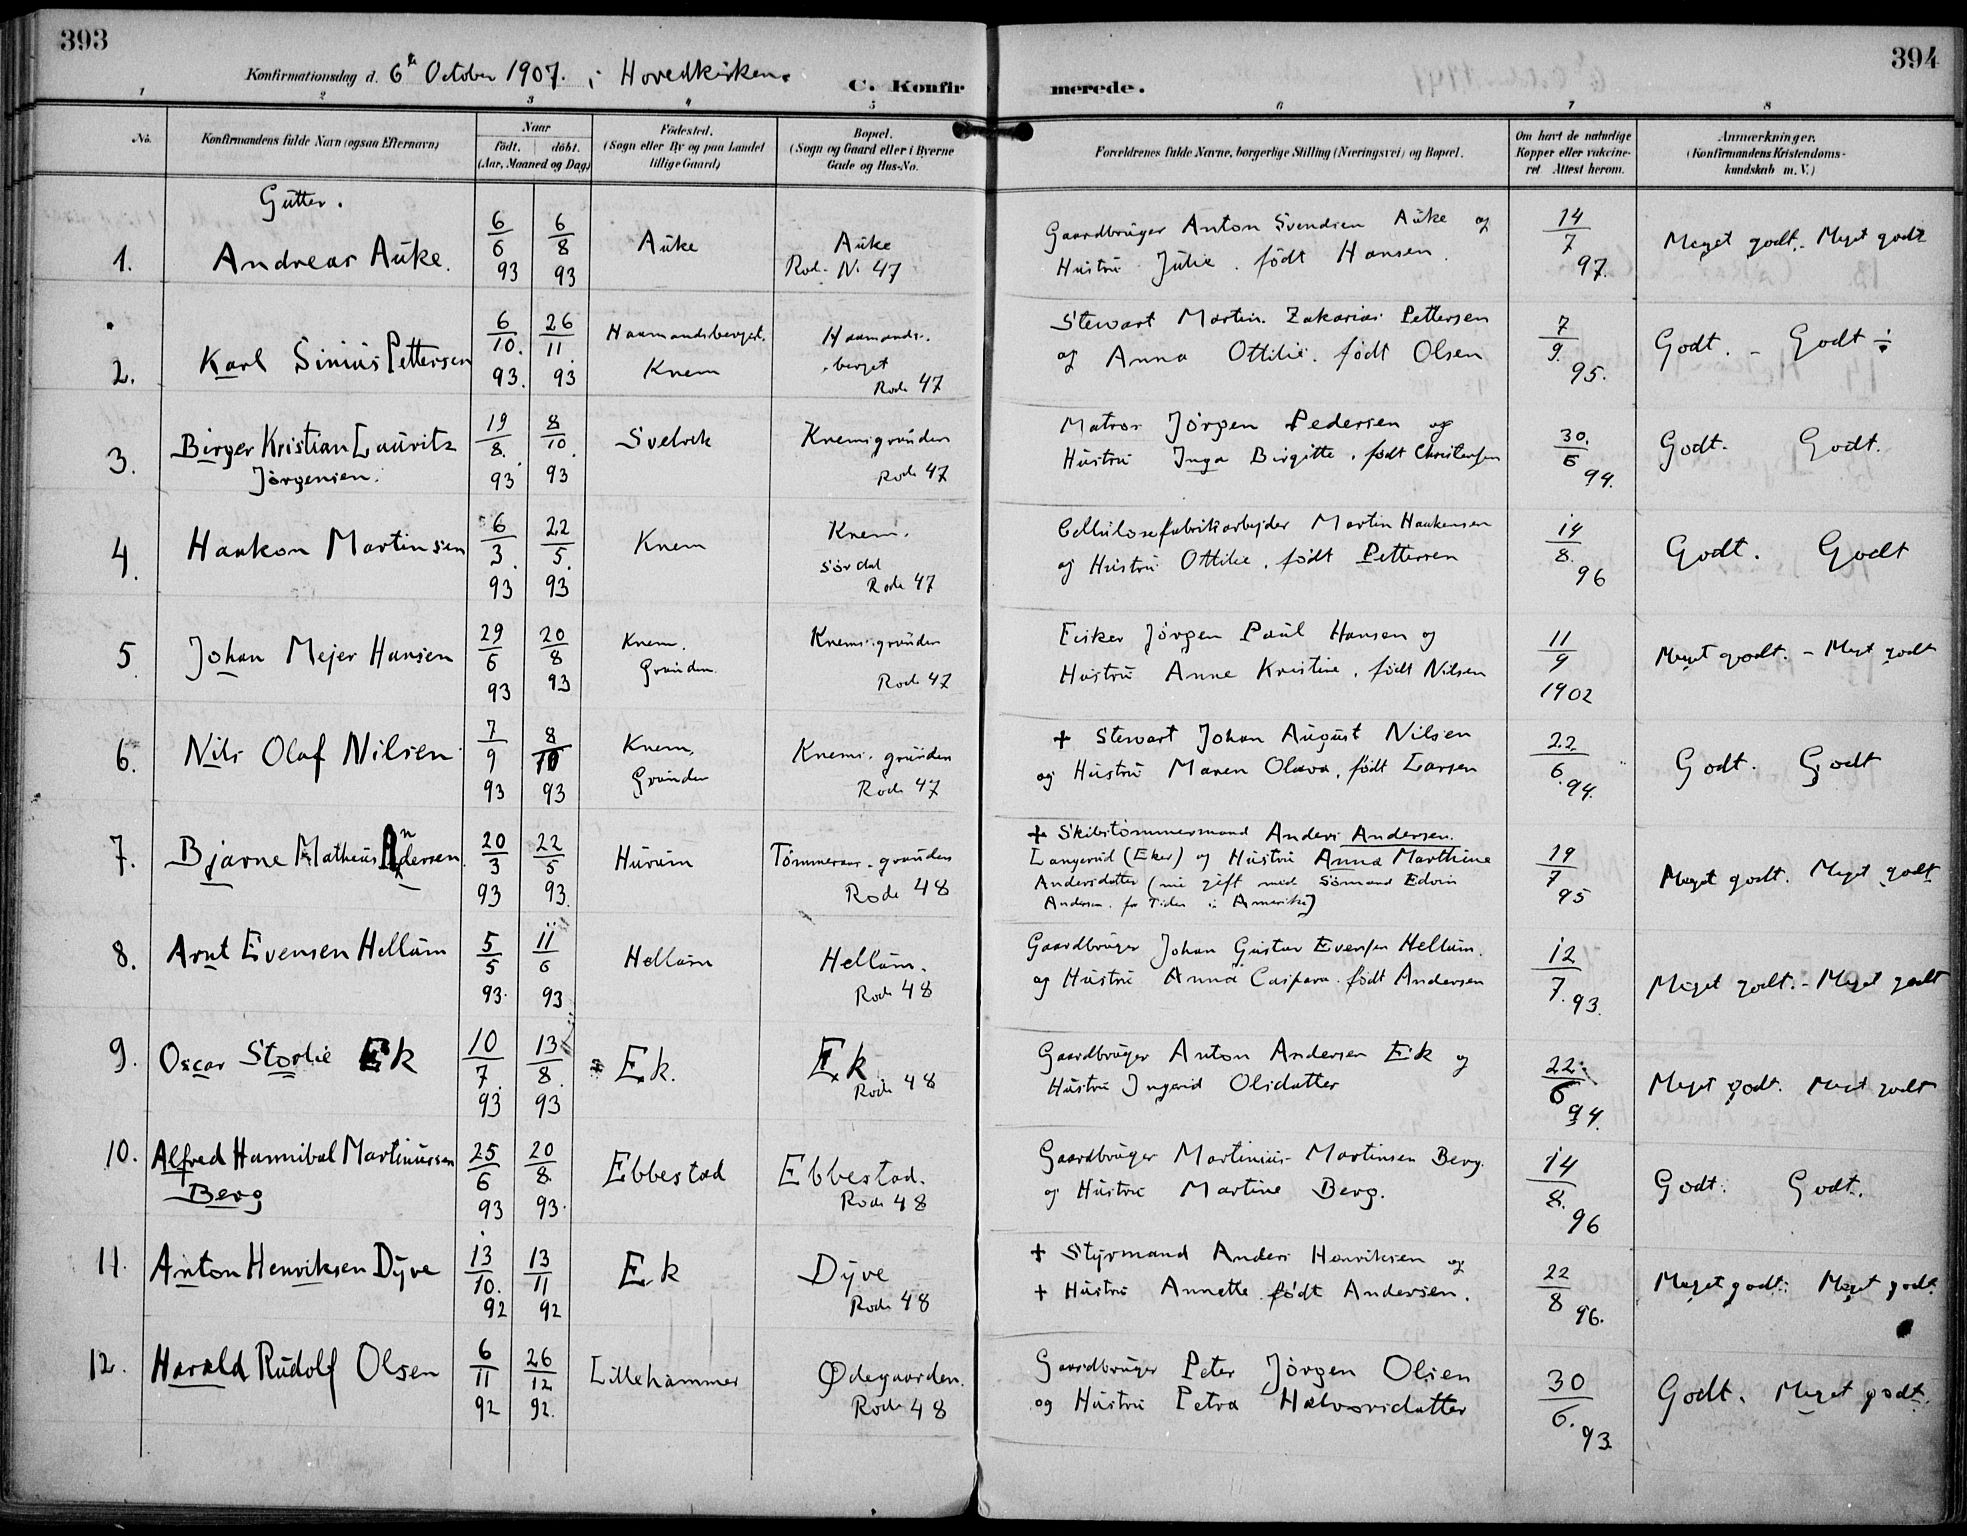 393
394
Konfirmationsdag d. 6te October 1907. i Hovedkirken.
C. Konfirmerede.
1 2 3 4 5 6 7 8
No.
Konfirmandens fulde Navn (ogsaa Efternavn)
Naar
födt. döbt.
(Aar, Maaned og Dag)
Födested.
(Sogn eller By og paa Landet
tillige Gaard)
Bopæl.
(Sogn og Gaard eller i Byerne
Gade og Hus-No.
Forældrenes fulde Navne, borgerlige Stilling (Næringsvei) og Bopæl.
Om havt de naturlige
Kopper eller vakcine-
ret Attest herom.
Anmærkninger.
(Konfirmandens Kristendoms-
kundskab m. V.)
Gutter.
1. Andreas Auke. 6/6 93 6/8 93 Auke
Auke
Rode N. 47
Gaardbruger Anton Svendsen Auke og
Hustru Julie født Hansen.
14/7 97. Meget godt. - Meget godt
2. Karl Sinius Pettersen 6/10. 93. 26/11. 93
Haamandsberget.
Knem
Haamands-
berget
Rode 47
Stewart Martin Zakarias Pettersen
og Anna Ottilie. født Olsen
7/9. 95. Godt. - Godt ÷
3. Birger Kristian Lauritz
Jørgensen.
19/8. 93 8/10. 93 Svelvik
Knemsgrunden
Rode 47
Matros Jörgen Pedersen og
Hustru Inga Birgitte, født Christensen
30./6 94. Godt. Godt.
4. Haakon Martinsen 6/3. 93 22/5. 93 Knem
Knem.
Sørdal
Rode 47
Cellulosefabrikarbejder Martin Haakensen
og Hustru Ottilie, født Pettersen
14/8. 96 Godt. Godt
5 Johan Mejer Hansen 29/6 93 20/8 93
Knem.
Grunden.
Knemsgrunden
Rode 47
Fisker Jörgen Paul Hansen og
Hustru Anne Kristine, født Nilsen
11/9 1902 Meget godt. - Meget godt
6. Nils Olaf Nilsen 7/9 93 8/10 93
Knem,
Grunden
Knems. grunden
Rode 47
+ Stewart Johan August Nilsen
og Hustru Maren Olava, født Larsen
22/6. 94. Godt. Godt
7. Bjarne Matheus Andersen 20/3 93 22/5 93. Hurum
Tömmeraas-grunden
Rode 48
+ Skibstömmermand Anders Andersen.
Langerud (Eker) og Hustru Anna Marthine
Andersdatter (nu gift med Sömand Edvin
Andersen. for Tiden i Amerika)
19/7 95 Meget godt. Meget godt
8. Arnt Evensen Hellum 5/5 93. 11/6 93. Hellum
Hellum.
Rode 48
Gaardbruger Johan Gustav Evensen Hellum.
og Hustru Anna Caspara født Andersen
12/7. 93. Meget godt. - Meget godt
9. Oscar Storlie Ek 10/7. 93 13/8. 93 Ek.
Ek
Rode 48
Gaardbruger Anton Andersen Eik og
Hustru Ingerid Olsdatter
22/6 94. Meget godt. Meget godt
10. Alfred Hannibal Martiniussen
Berg
25/6 93 20/8. 93. Ebbestad
Ebbestad.
Rode 48
Gaardbruger Martinius Martinsen Berg.
og Hustru Martine Berg.
14/8. 96 Godt. Godt.
11. Anton Henriksen Dyve 13/10. 92 13/11 92 Ek
Dyve
Rode 48
+ Styrmand Anders Henriksen og
+ Hustru Annette født Andersen.
22/8 96. Meget godt. Meget godt.
12. Harald Rudolf Olsen 6/11 92 26/12 92. Lillehammer
Ødegaarden.
Rode 48
Gaardbruger Peter Jörgen Olsen
og Hustru Petra Halvorsdatter
30/6. 93 Godt. Meget godt.